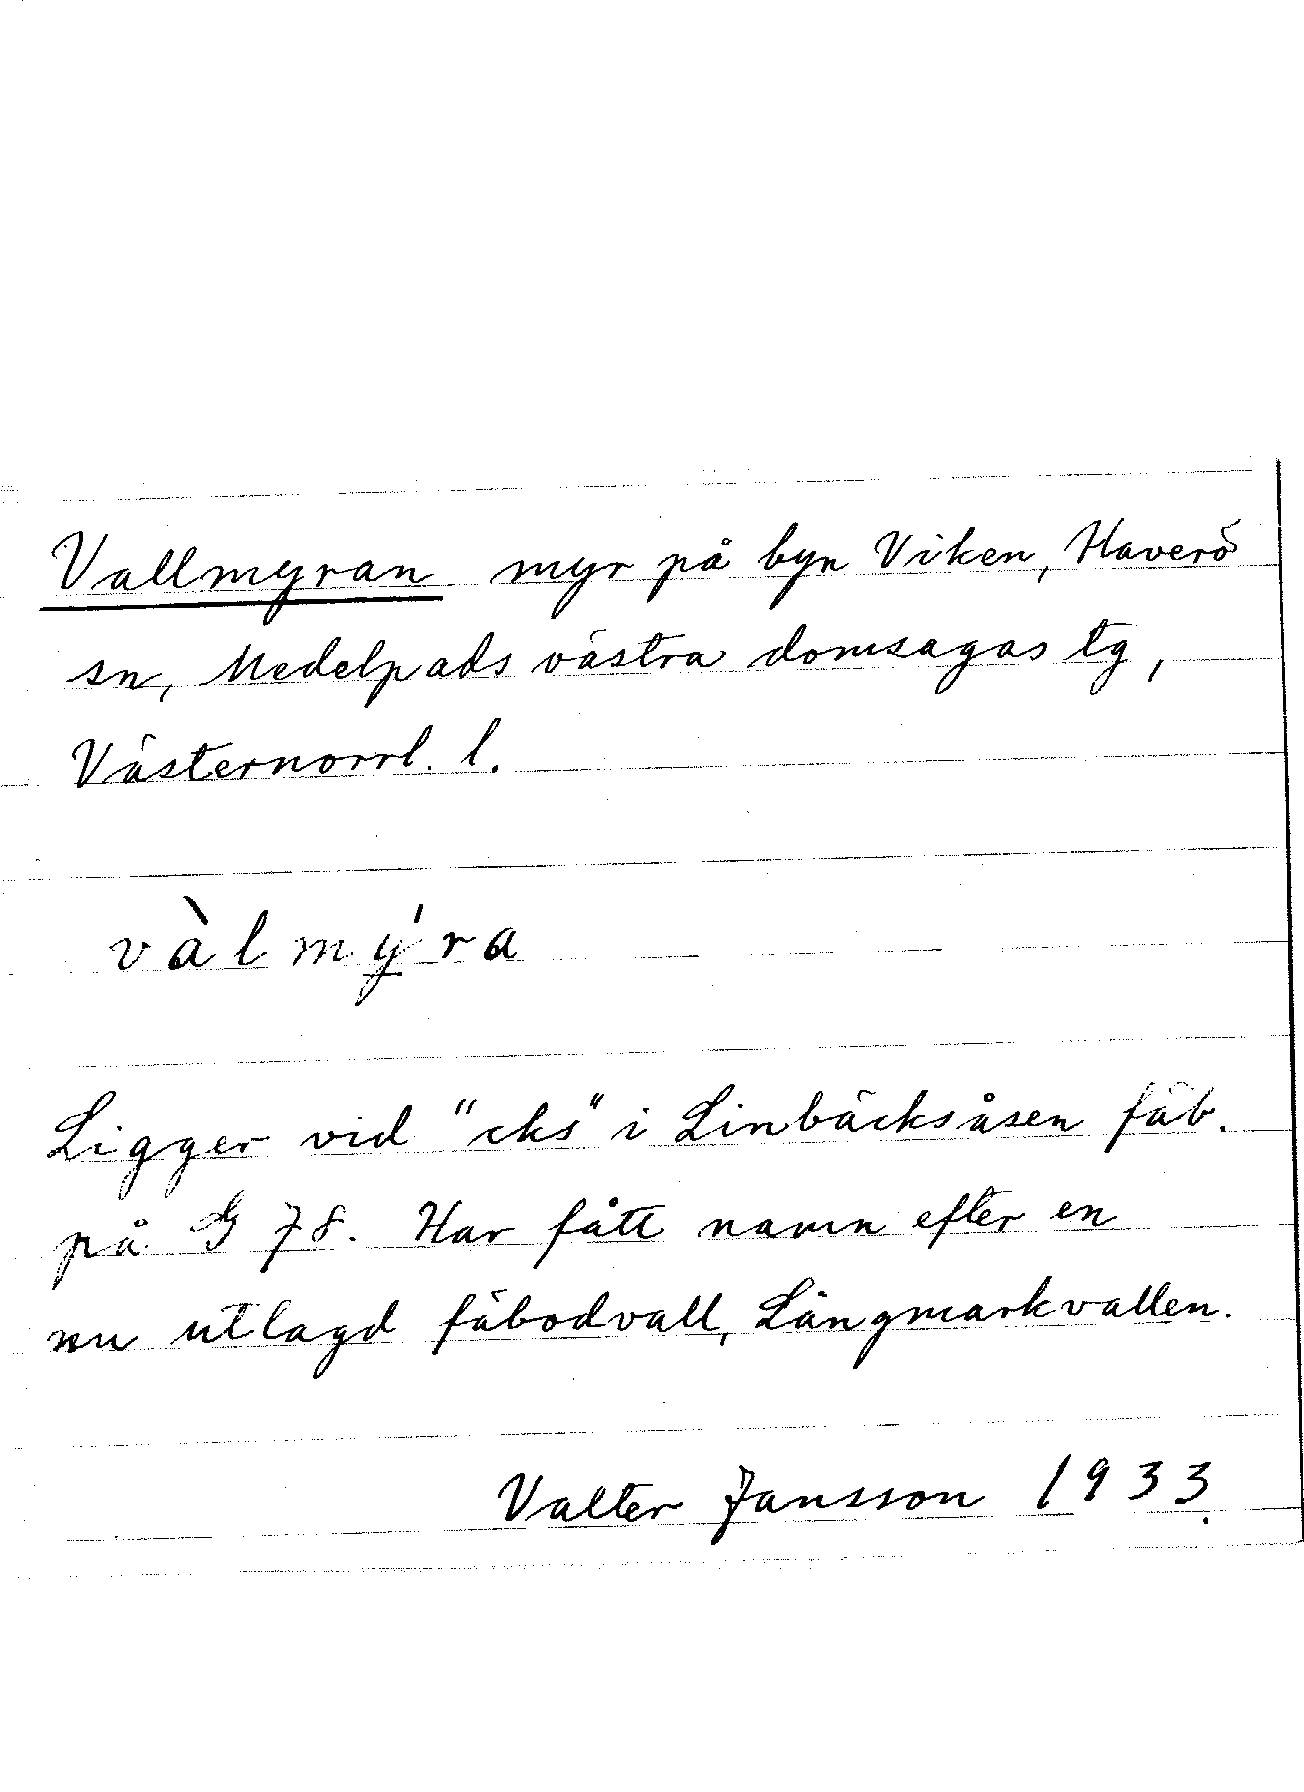 Vallmyran myr på byn Viken, Haverö
sn, Medelpads västra domsagas tg,
Västernorrl. l.
vàlmý̲ra
Ligger vid "cks" i Linbäcksåsen fäb.
på G 78. Har fått namn efter en
nu utlagd fäbodvall, Långmarkvallen.
Valter Jansson 1933.